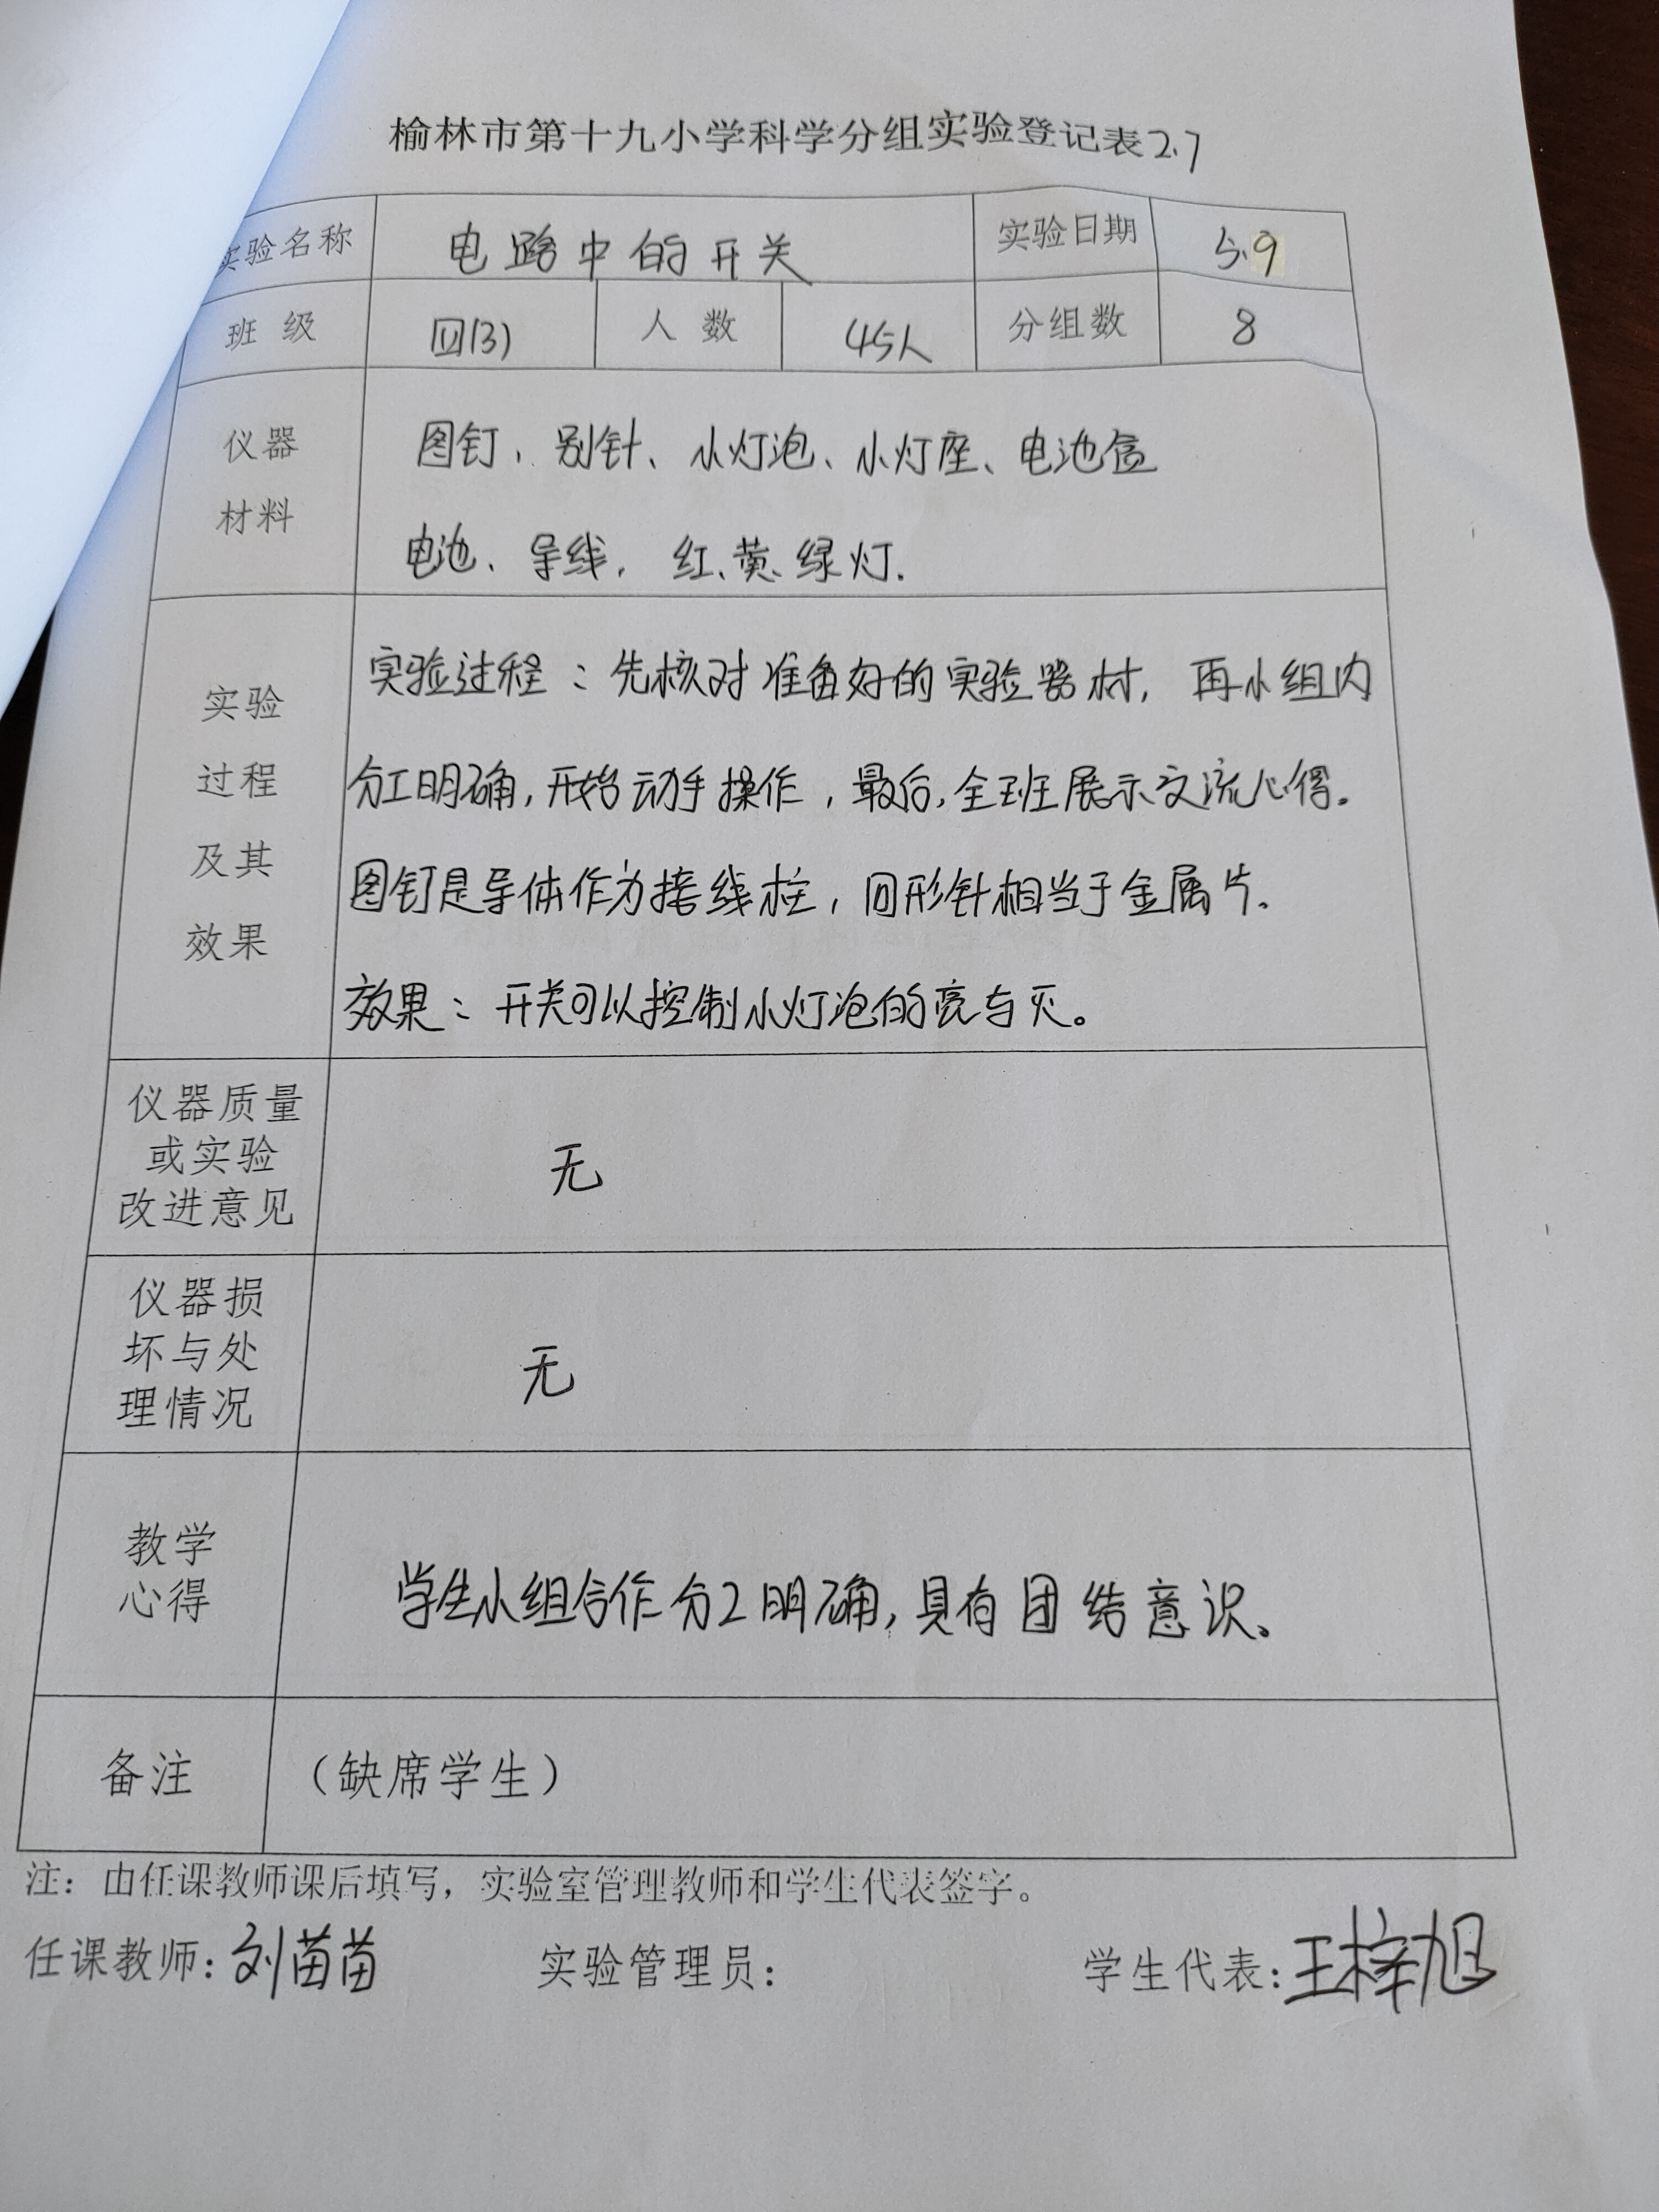 榆林市第十九小学科学分组实验登记表2.7
实验名称 电路中的开关 实验日期 5.9
班 级 四(3) 人 数 45人 分组数 8
仪器
材料
图钉、别针、小灯泡、小灯座、电池盒
电池、导线、红、黄、绿灯.
实验
过程
及其
效果
实验过程：先核对准备好的实验器材，再小组内
分工明确，开始动手操作，最后，全班展示交流心得。
图钉是导体作为接线柱，回形针相当于金属片.
效果：开关可以控制小灯泡的亮与灭。
仪器质量
或实验
改进意见
无
仪器损
坏与处
理情况
无
教学
心得
学生小组合作分工明确，具有团结意识。
备注 （缺席学生）
注：由任课教师课后填写，实验室管理教师和学生代表签字。
任课教师：刘苗苗 实验管理员： 学生代表：王梓旭